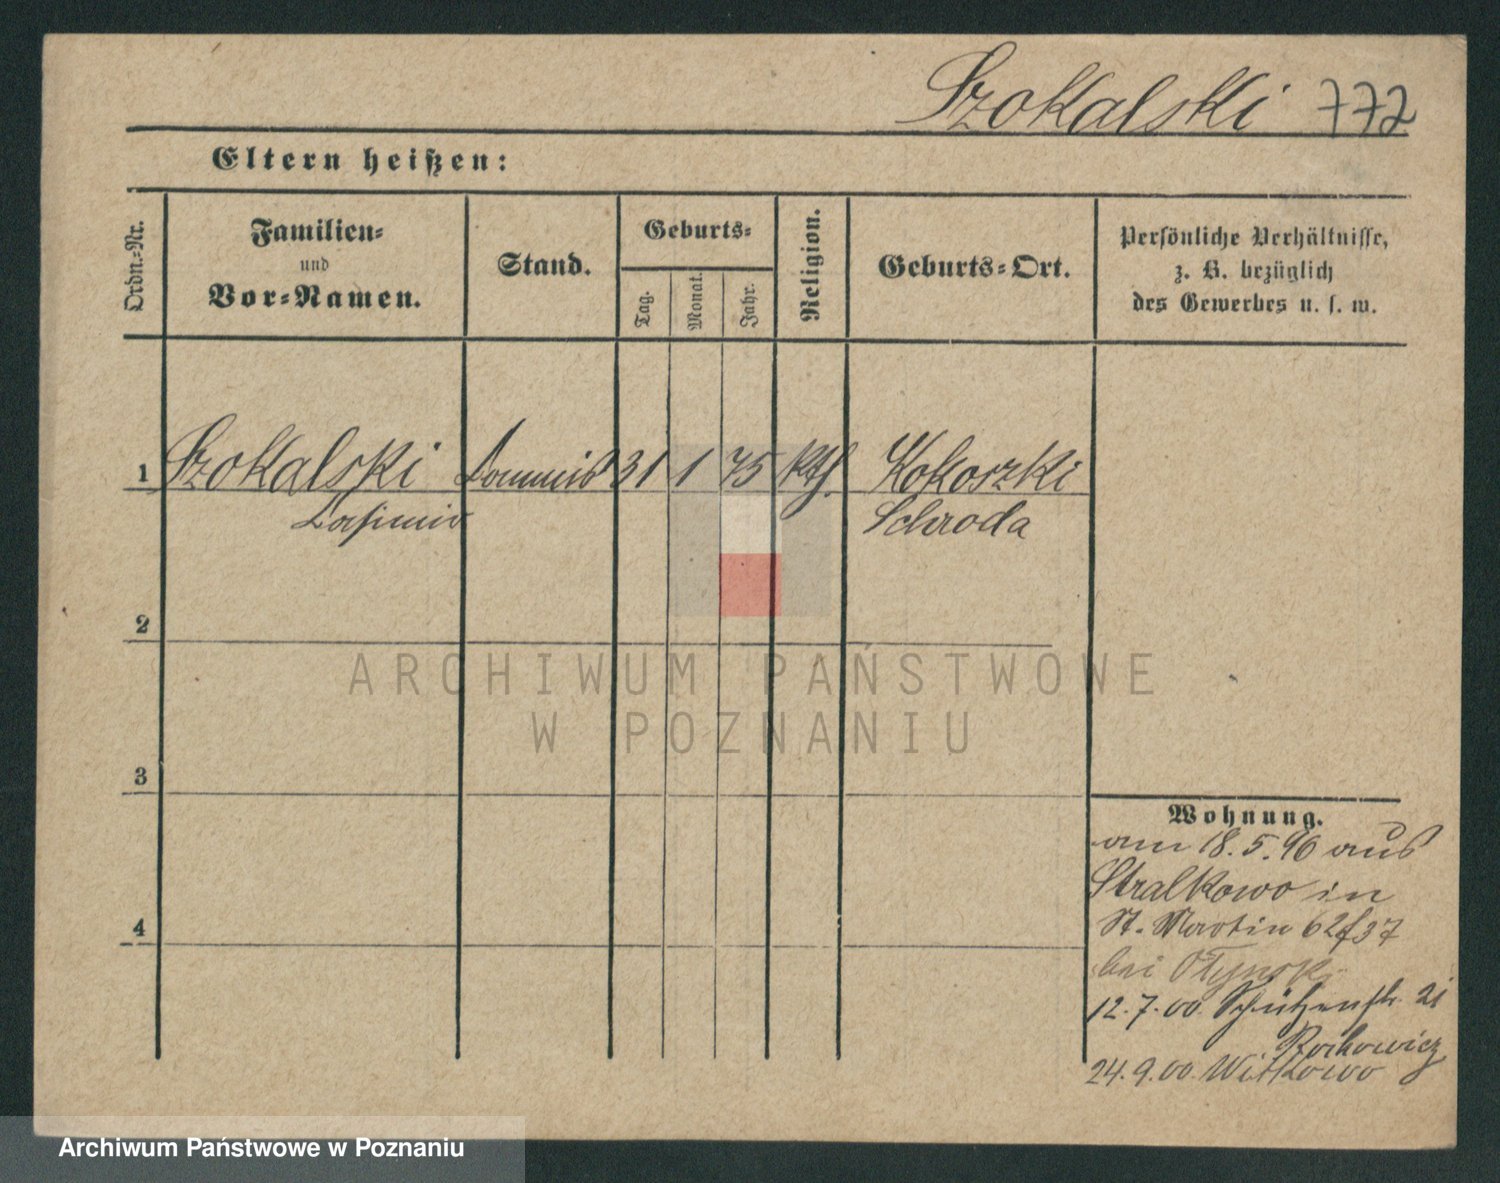 Szokalski 772
Eltern heißen:
Ordn.-Nr.
Familien-
und
Vor-Namen.
Stand.
Geburts-
Tag.
Monat.
Jahr.
Religion.
Geburts-Ort.
Persönliche Verhältnisse,
z. B. bezüglich
des Gewerbes u. s. w.
1 Szokalski Commis 31 1 75 kth. Kokoszki
Casimir Schroda
2
3
4
Wohnung.
am 18.5.96 aus
Stralkowo in
St. Martin 62
bei
12.7.00. Schützenstr. 21
24.9.00 Witkowo
ARCHIWUM PAŃSTWOWE
W POZNANIU
Archiwum Państwowe w Poznaniu